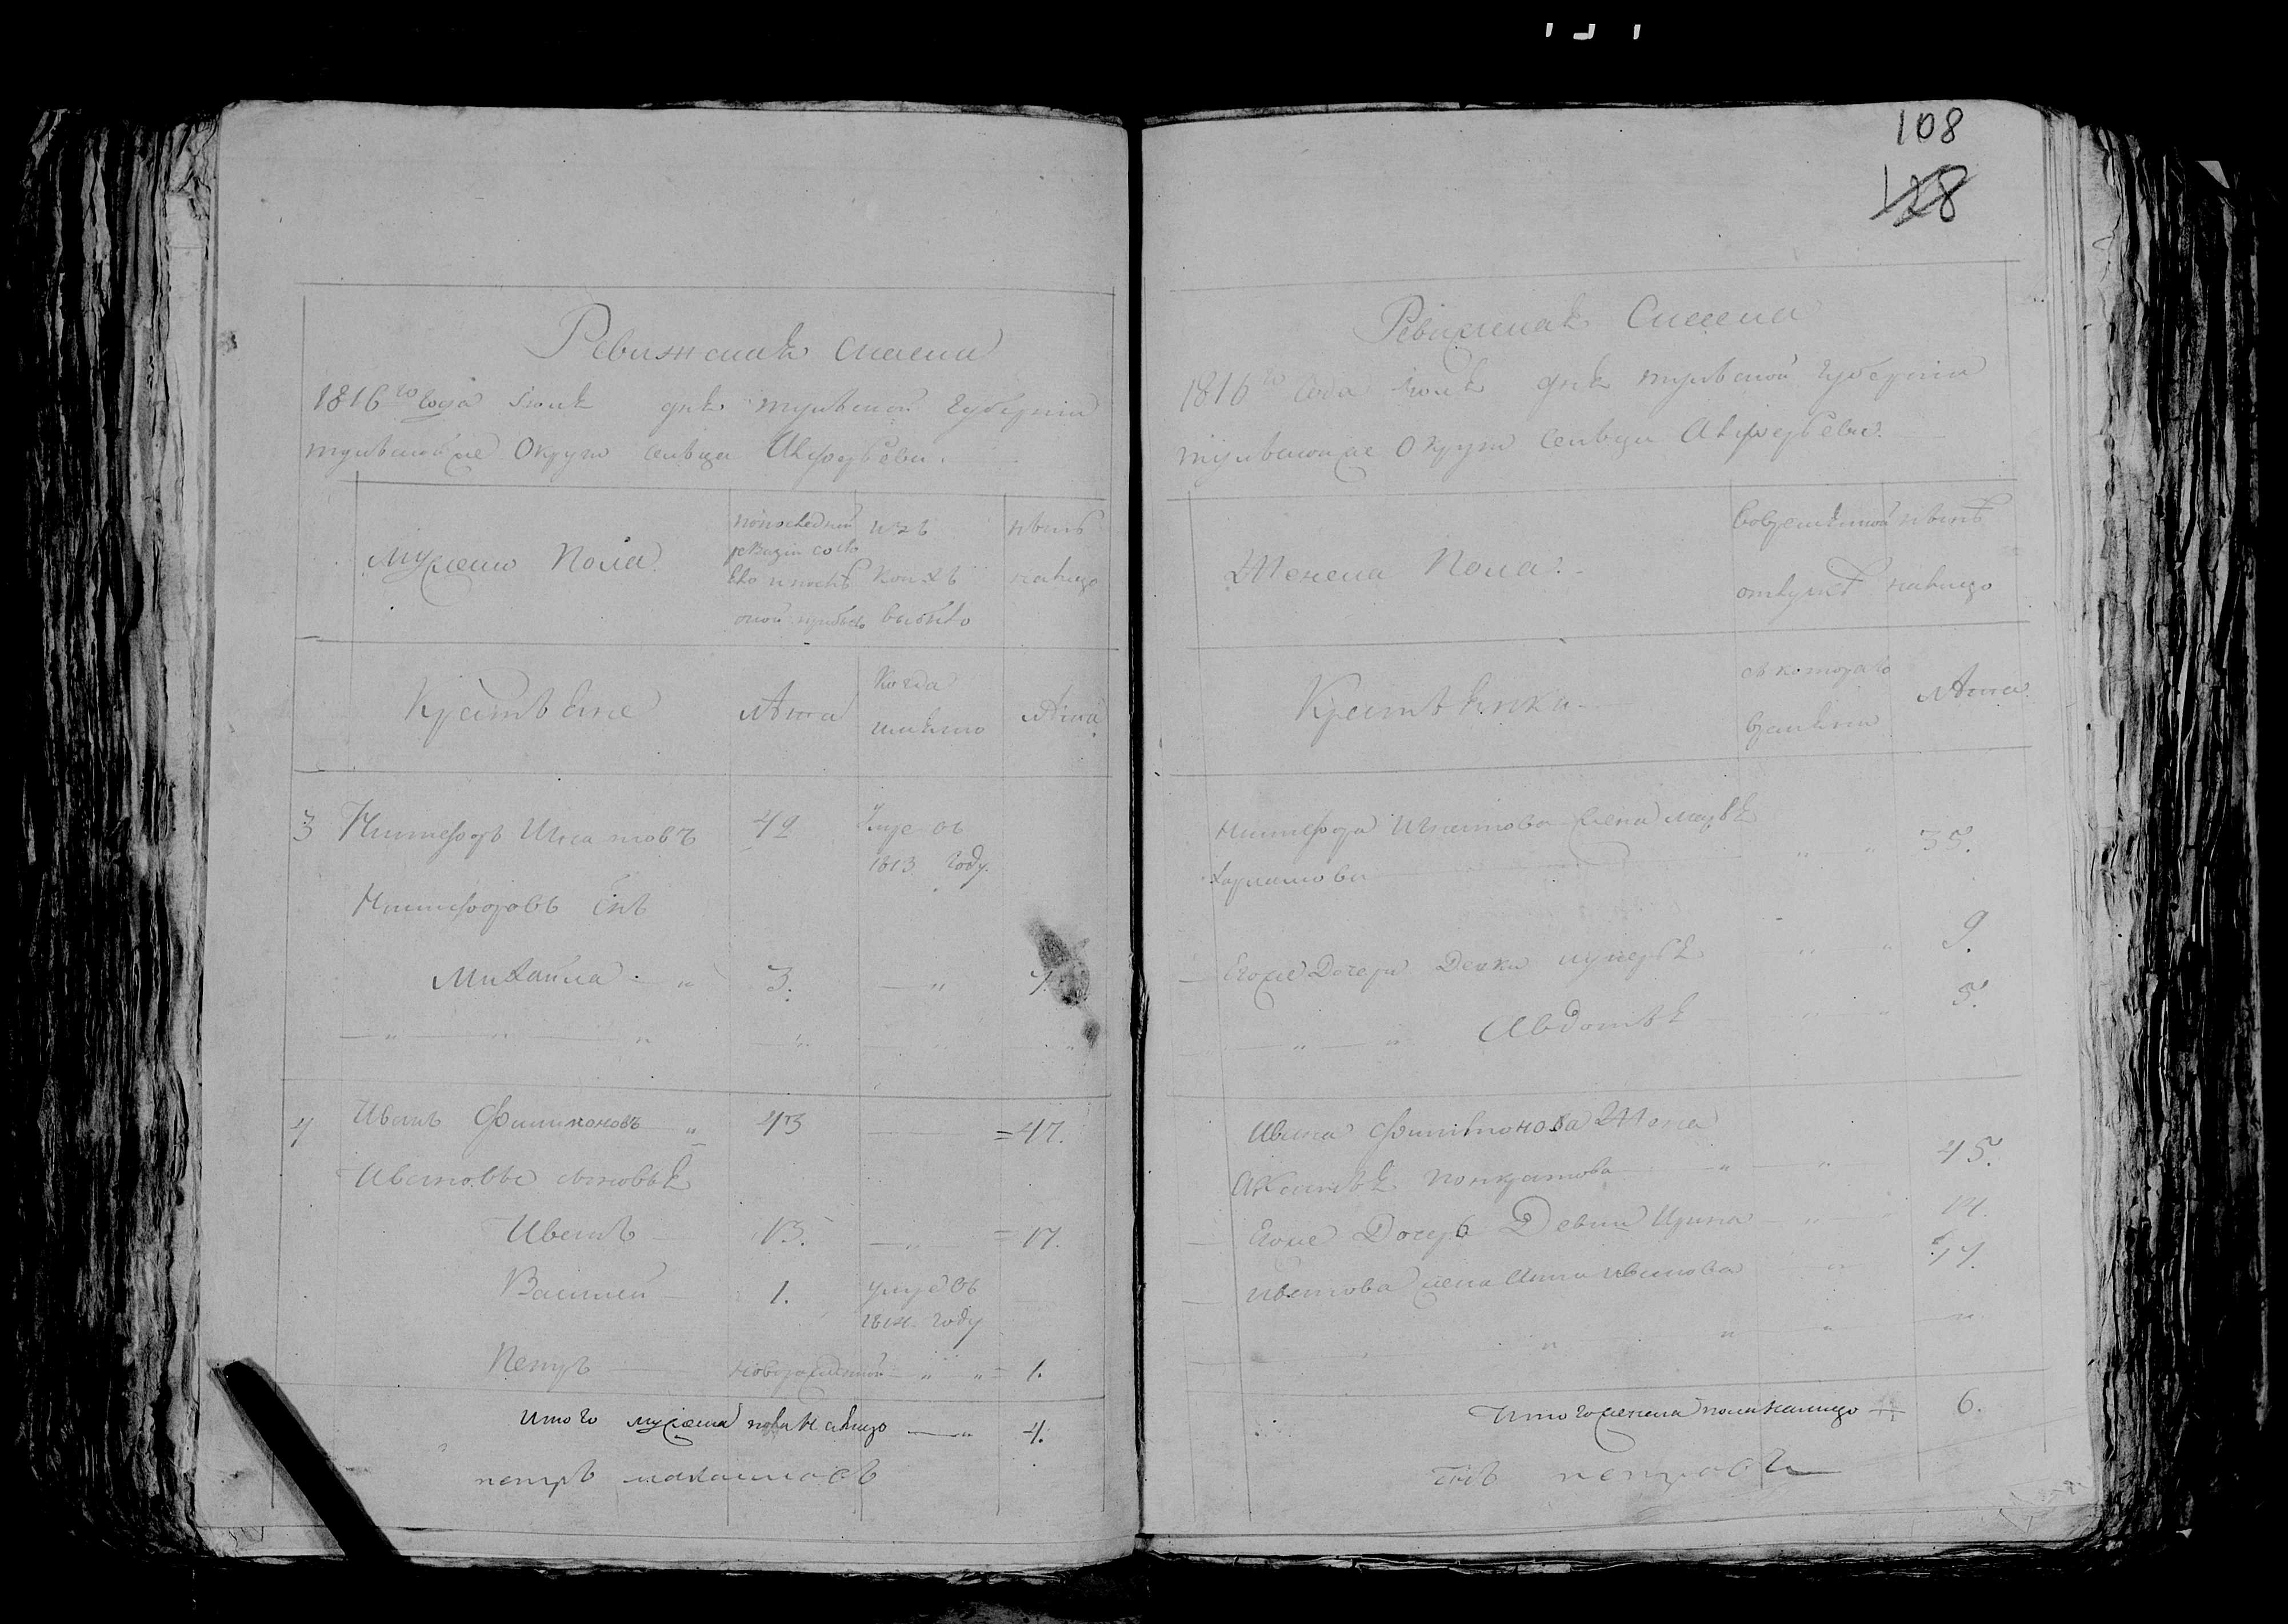 Ревижская сказка
1816го года Июля дня тульской губернии
тульской же Округи сельца Алферьева.
Мужеск Пола
попоследней
ревизии состо
яло и после
оной прибыло
изъ
коихъ
выбыло
ныне
налицо
Крестьяне
Лета
Когда
имянно
Лета
3 Никифоръ Игнатовъ 49 умре въ
1813 году.
Никифоровъ Снъ
Михайла 3. 7.
4 Иванъ Филимоновъ 43 = 47.
Ивановы сыновья
Иванъ 13. = 17.
Василей 1. умре въ
1814 году
Петръ новорожденной = 1.
Итого мужеска пола налицо 4.
петръ
108
128
Ревижская Сказка
1816го года Июля дня тульской губернии
тульской же Округи сельца Алферьева.
Женска Пола.
Вовременной
отлучке
ныне
налицо
Крестьянки
съ котораго
времяни
Лета
Никифора Игнатова жена Марья
Харламова 35.
Егоже Дочери Девки 9.
Авдотья 5.
Ивана Филимонова Жена
Аксинья Понкратова 45.
Егоже Дочерь Девка Ирина 14.
Иванова жена Анна Иванова 17.
Итого женска пола налицо 6.
снъ петровъ